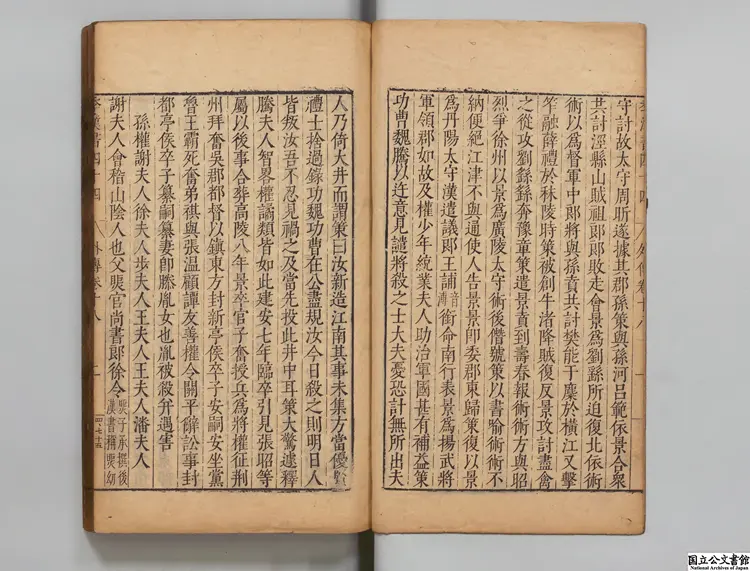 守討故太守周昕遂據其郡孫策與孫河呂範依景合衆
共討涇縣山賊祖郎郎敗走會景爲劉繇所迫復北依術
術以爲督軍中郎將與孫賁共討樊能于麋於橫江又擊
笮融薛禮於秣陵時策被創牛渚降賊復反景攻討盡禽
之從攻劉繇繇奔豫章策遣景賁到壽春報術術方與昭
烈爭徐州以景爲廣陵太守術後僭號策以書喻術術不
納便絕江津不與通使人告景景即委郡東歸策復以景
爲丹陽太守漢遣議郎王誧音浦銜命南行表景爲揚武將
軍領郡如故及權少年統業夫人助治軍國甚有補益策
功曹魏騰以迕意見譴將殺之士大夫憂恐計無所出夫
人乃倚大井而謂策曰汝新造江南其事未集方當優賢
禮士捨過錄功魏功曹在公盡規汝今日殺之則明日人
皆叛汝吾不忍見禍之及當先投此井中耳策大驚遽釋
騰夫人智畧權譎類皆如此建安七年臨卒引見張昭等
屬以後事合葬高陵八年景卒官子奮授兵爲將權征荊
州拜奮吳郡都督以鎮東方封新亭侯卒子安嗣安坐黨
魯王霸死奮弟祺與張溫顧譚友善權令關平辭訟事封
都亭侯卒子纂嗣纂妻即滕胤女也胤被殺并遇害
孫權謝夫人徐夫人步夫人王夫人王夫人潘夫人
謝夫人會稽山陰人也父煚官尚書郎徐令煚子承撰後漢書稱煚幼
季漢書四十四 外傳卷十八 一
国立公文書館
National Archives of Japan